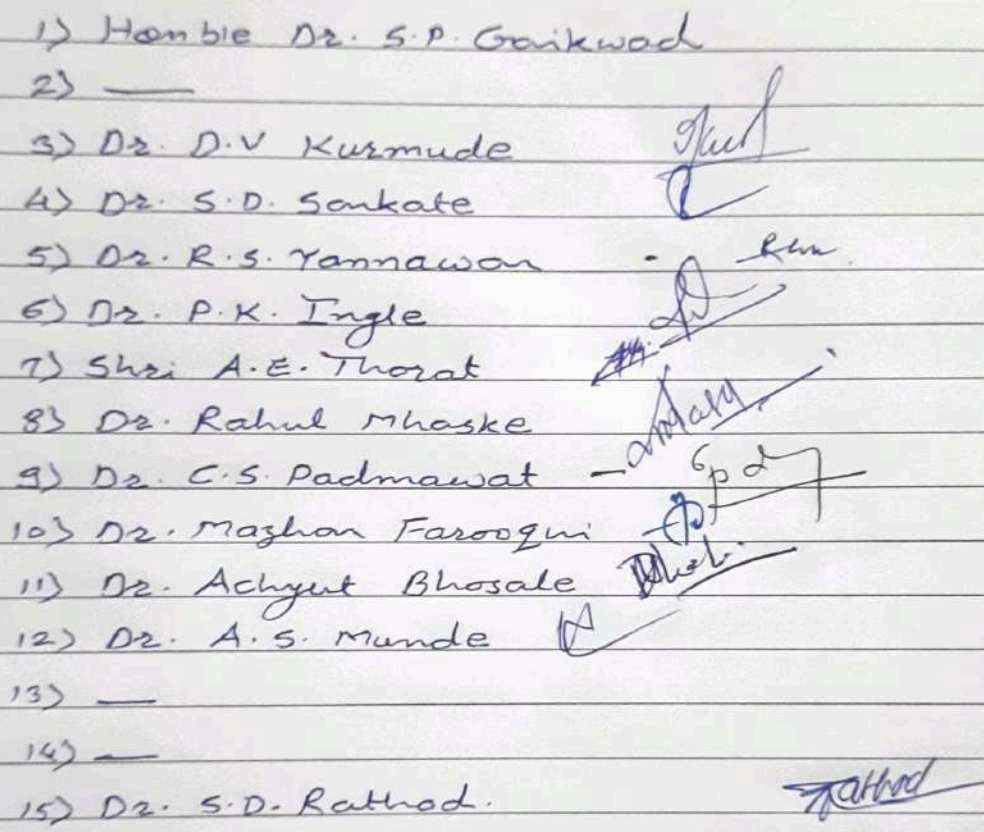 1) Honble Dr. S.P. Gaikwad
2) —
3) Dr. D.V Kurmude
4) Dr. S.D. Sankate
5) Dr. R.S. Yannawar
6) Dr. P.K. Ingle
7) Shri A.E. Thorat
8) Dr. Rahul Mhaske
9) Dr. C.S. Padmawat
10) Dr. Mazhar Farooqui
11) Dr. Achyut Bhosale
12) Dr. A.S. Munde
13) —
14) —
15) Dr. S.D. Rathod. Rathod